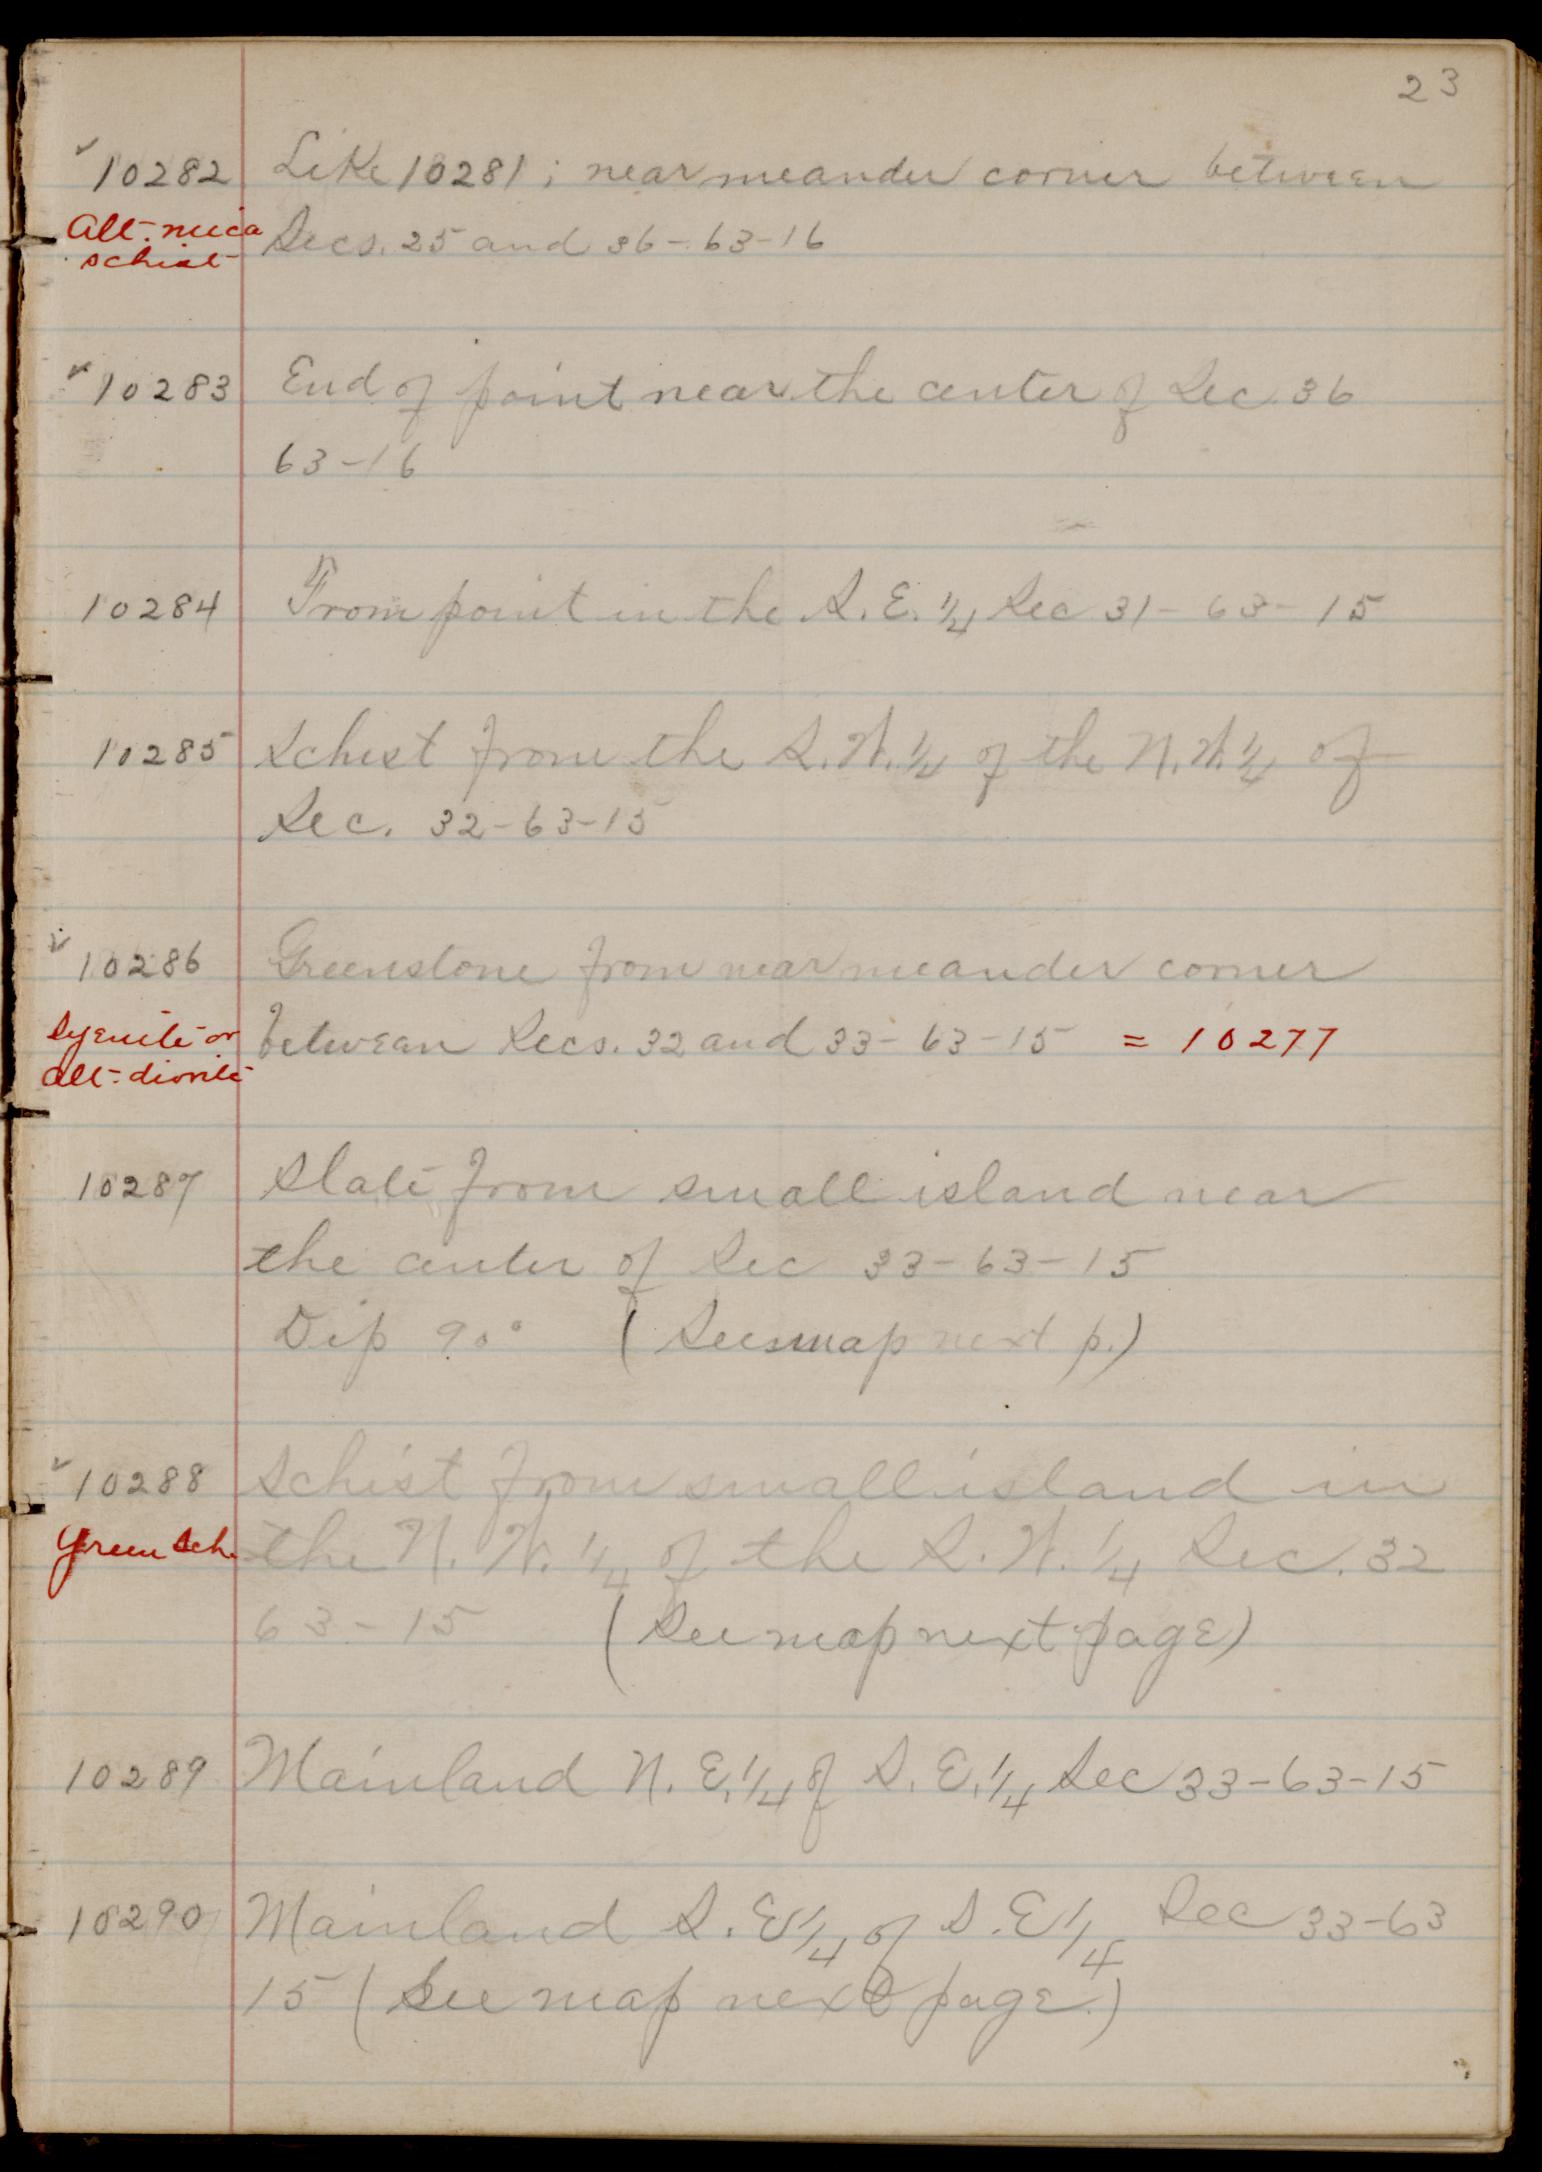 23
✓10282 Like 10281; near meander corner between
alt. mica Secs. 25 and 36-63-16
schist
✓10283 End of point near the center of Sec 36
63-16
10284 From point in the S.E. 1/4 Sec 31-63-15
10285 Schist from the S.W. 1/4 of the N.W. 1/4 of
Sec. 32-63-15
✓10286 Greenstone from near meander corner
Syenite or between Secs. 32 and 33-63-15 = 10277
alt. diorite
10287 Slate from small island near
the center of Sec 33-63-15
Dip 90° (See map next p.)
✓10288 Schist from small island in
Green Sch. the N.W. 1/4 of the S.W. 1/4 Sec. 32
63-15 (See map next page)
10289 Mainland N.E. 1/4 of S.E. 1/4 Sec 33-63-15
10290 Mainland S.E 1/4 of S.E 1/4 Sec 33-63
15 (See map next page.)